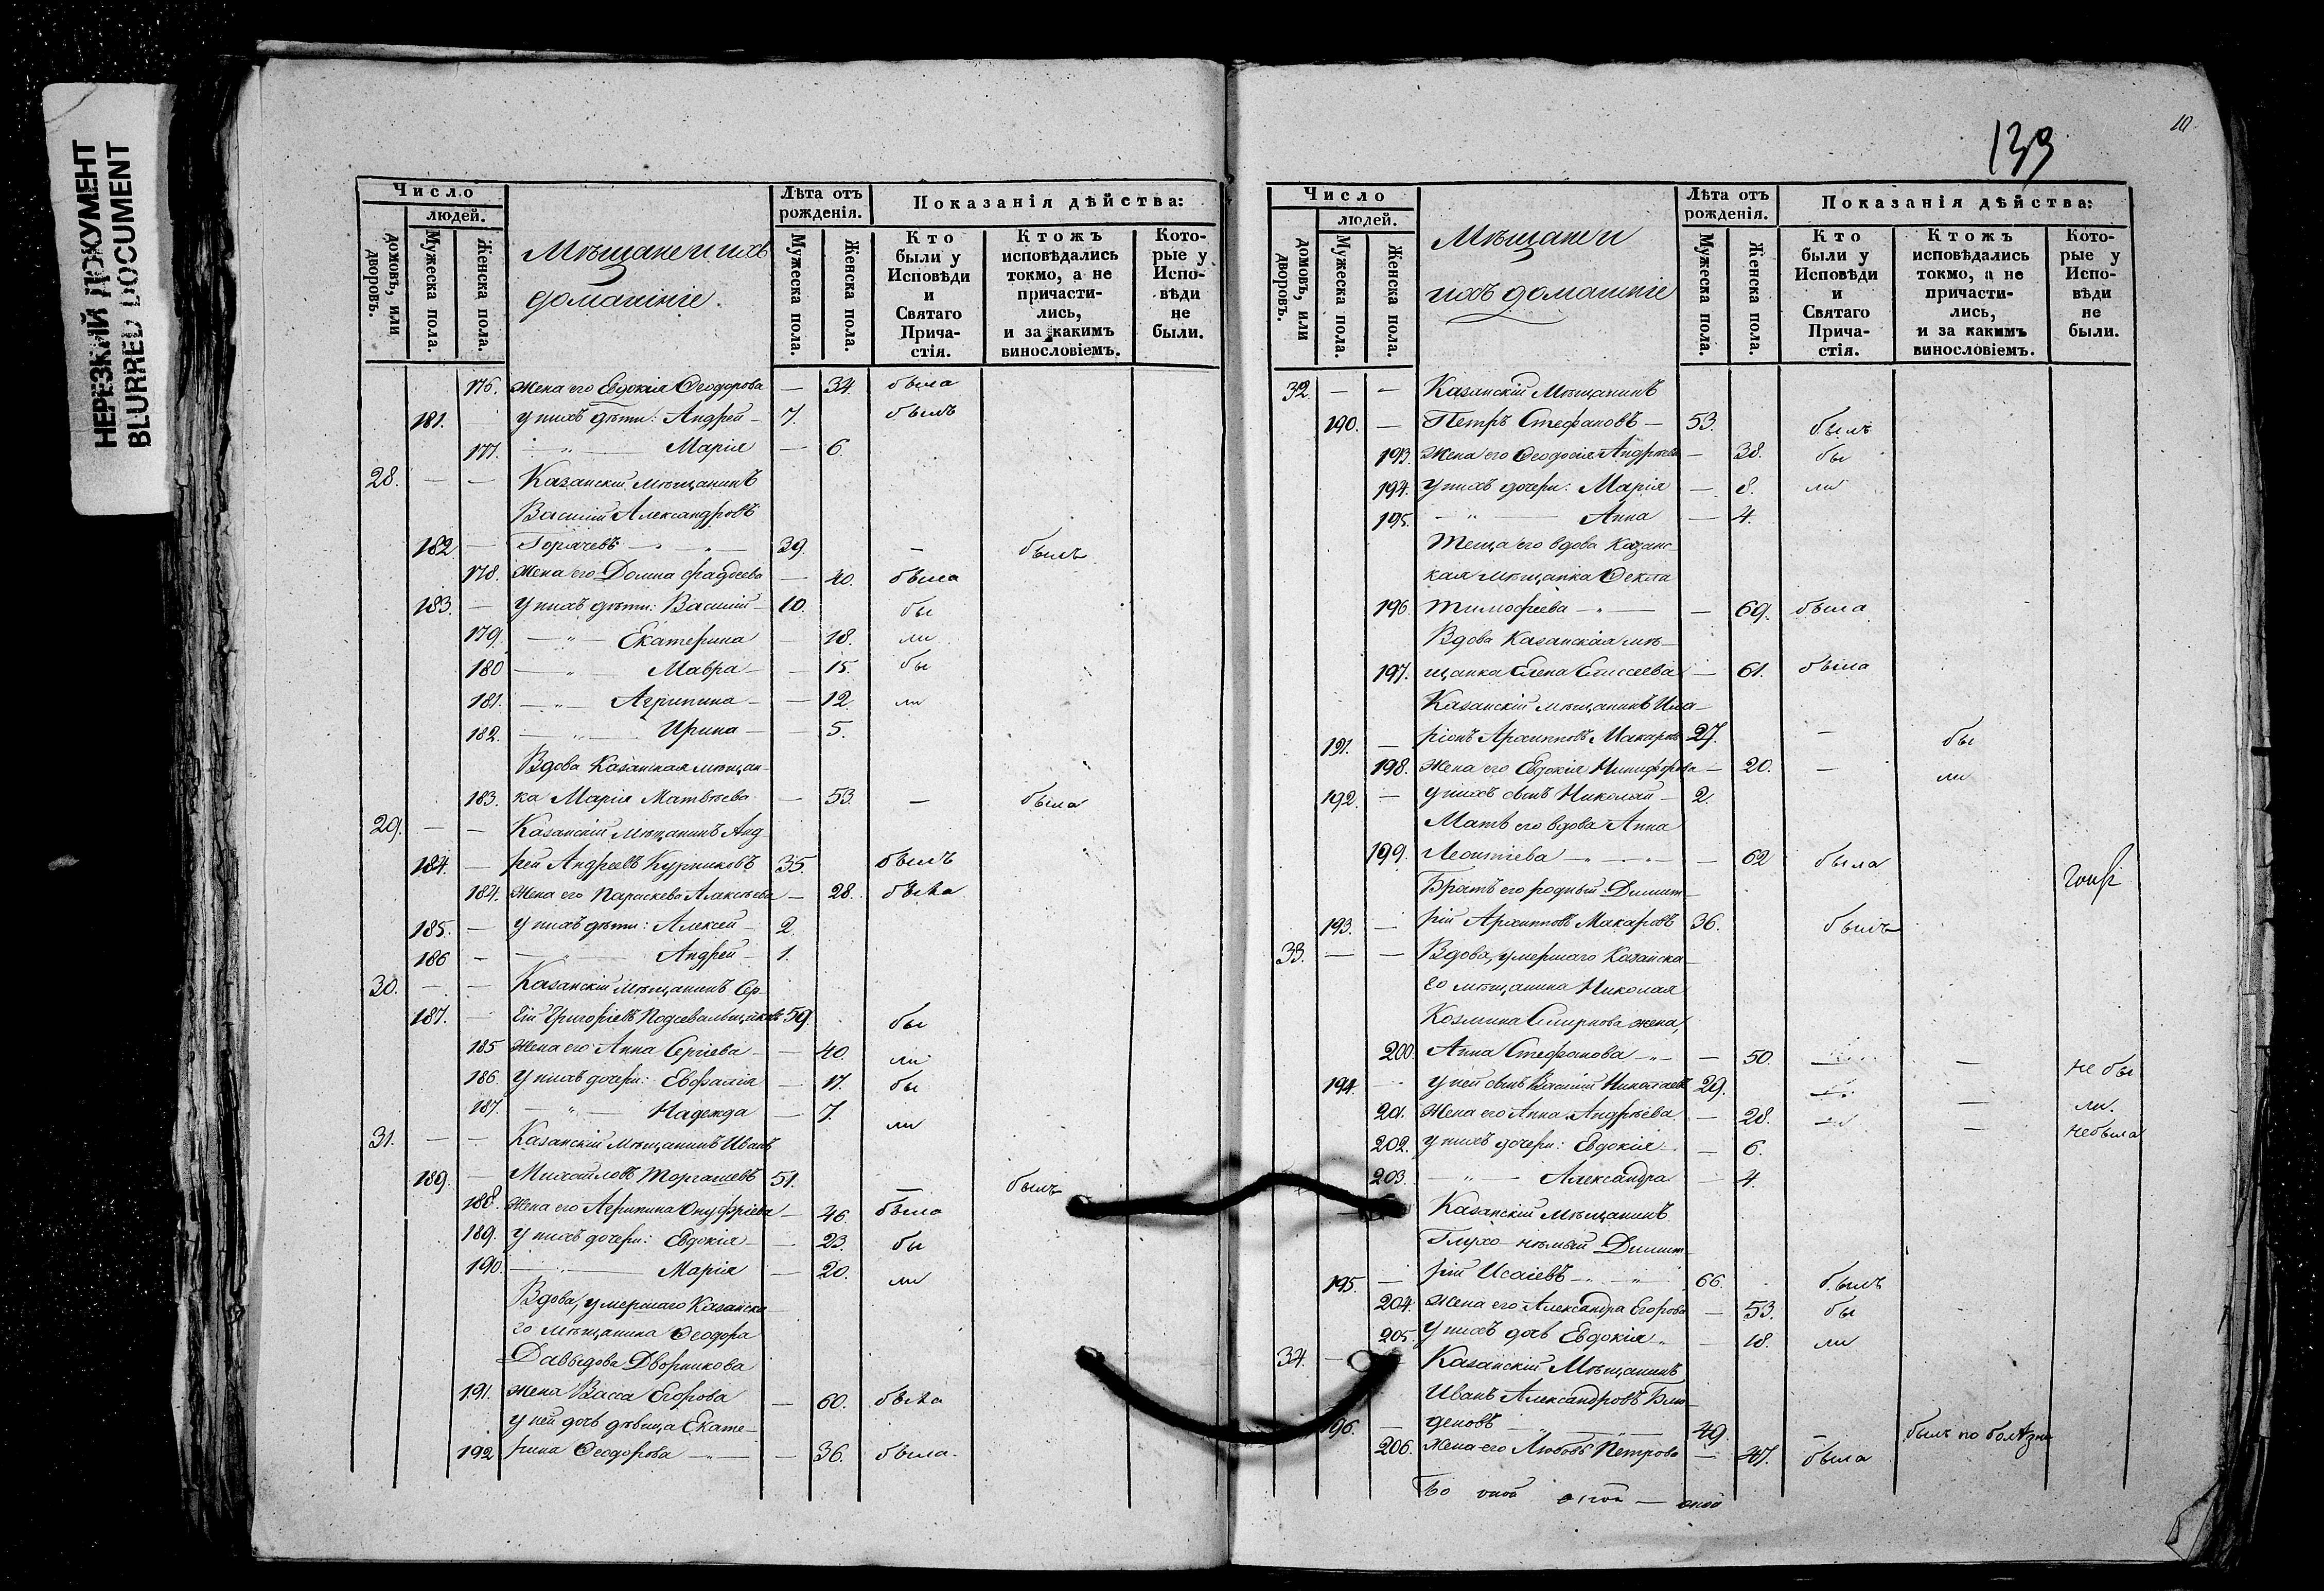 НЕРЕЗКИЙ ДОКУМЕНТ
BLURRED DOCUMENT
Число
людей.
домовъ, или дворовъ.
Мужеска пола.
Женска пола.
Мѣщане и ихъ
домашніе.
Лѣта отъ рожденія.
Мужеска пола.
Женска пола.
Показанія дѣйства:
Кто были у Исповѣди и Святаго Прича-стія.
Ктожъ исповѣдались токмо, а не причасти-лись, и за какимъ винословіемъ.
Кото-рые у Испо-вѣди не были.
176. жена его Евдокія Ѳеодорова — 34. была
181. у нихъ дѣти: Андрей — 7. былъ
177. — „ — Марія — 6.
28. — — Казанскій Мѣщанинъ
Василій Александровъ
182 — Горячевъ — „ — 39. — былъ
178. жена его Домна Фадѣева — 40. была
183. — у нихъ дѣти: Василій — 10. бы
179. — „ — Екатерина — 18. ли
180 — „ — Мавра — 15. бы
181. — „ — Агрипина — 12. ли
182. — „ — Ирина — 5.
Вдова Казанская мѣщан-
183. ка Марія Матвѣева — 53. — была
29. — — Казанскій Мѣщанинъ Анд
184. — рей Андреевъ Курниковъ 35. былъ
184. жена его Параскева Алексѣева — 28. была
185. — у нихъ дѣти: Алексей — 2.
186 — — „ — Андрей — 1.
30. — — Казанскій Мѣщанинъ Сер-
187. — гій Григорьевъ 59. бы
185 жена его Анна Сергіева — 40. ли
186. у нихъ дочери: Евфалія — 17. бы
187. — „ — Надежда — 7. ли
31. — — Казанскій Мѣщанинъ Иванъ
189. — Михайловъ Торгашевъ 51. — былъ
188. жена его Агрипина Онуфріева — 46. была
189. у нихъ дочери: Евдокія — 23. бы
190. — „ — Марія — 20. ли
Вдова, умершаго Казанска-
го мѣщанина Ѳеодора
Давыдова Дворникова
191. жена Васса Егорова — 60. была
у ней дочь дѣвица Екате-
192 рина Ѳеодорова — „ — — 36. была.
139
10.
Число
людей.
домовъ, или дворовъ.
Мужеска пола.
Женска пола.
Мѣщане и
ихъ домашніе
Лѣта отъ рожденія.
Мужеска пола.
Женска пола.
Показанія дѣйства:
Кто были у Исповѣди и Святаго Прича-стія.
Ктожъ исповѣдались токмо, а не причасти-лись, и за какимъ винословіемъ.
Кото-рые у Испо-вѣди не были.
32. — — Казанскій Мѣщанинъ
190. — Петръ Стефановъ — 53. былъ
193. жена его Ѳеодосія Андреева — 38. бы
194. у нихъ дочери: Марія — 8. ли
195. — „ — Анна — 4.
Теща его вдова Казанс-
кая мѣщанка Ѳекла
196. Тимофеева — „ — — 69. была
Вдова Казанская мѣ-
197. щанка Елена Елисеева — 61. была
Казанскій мѣщанинъ Ила-
191. — ріонъ Архипповъ Макаровъ 27. — бы
198. жена его Евдокія Никифорова — 20. — ли
192. — у нихъ сынъ Николай — 2.
Мать его вдова Анна
199. Леонтіева — „ — „ — — 62 была
Братъ его родный Димит-
193. — рій Архипповъ Макаровъ 36. былъ
33. — — Вдова, умершаго Казанска-
го мѣщанина Николая
Козмина Смирнова жена,
200. Анна Стефанова — „ — — 50. — не бы
194 — у ней сынъ Василій Николаевъ 29. — ли.
201. жена его Анна Андреева — 28. — не была
202. у нихъ дочери: Евдокія — 6.
203. — „ — Александра — 4.
Казанскій мѣщанинъ
Глухо-нѣмый Димит-
195. — рій Исаіевъ — „ — „ 66. былъ
204. жена его Александра Егорова — 53. бы
205. у нихъ дочь Евдокія „ — 18. ли
34. — Казанскій Мѣщанинъ
Иванъ Александровъ Блю-
196. — деновъ 49. — былъ по болѣзни
206. жена его Любовь Петрова — 47. была